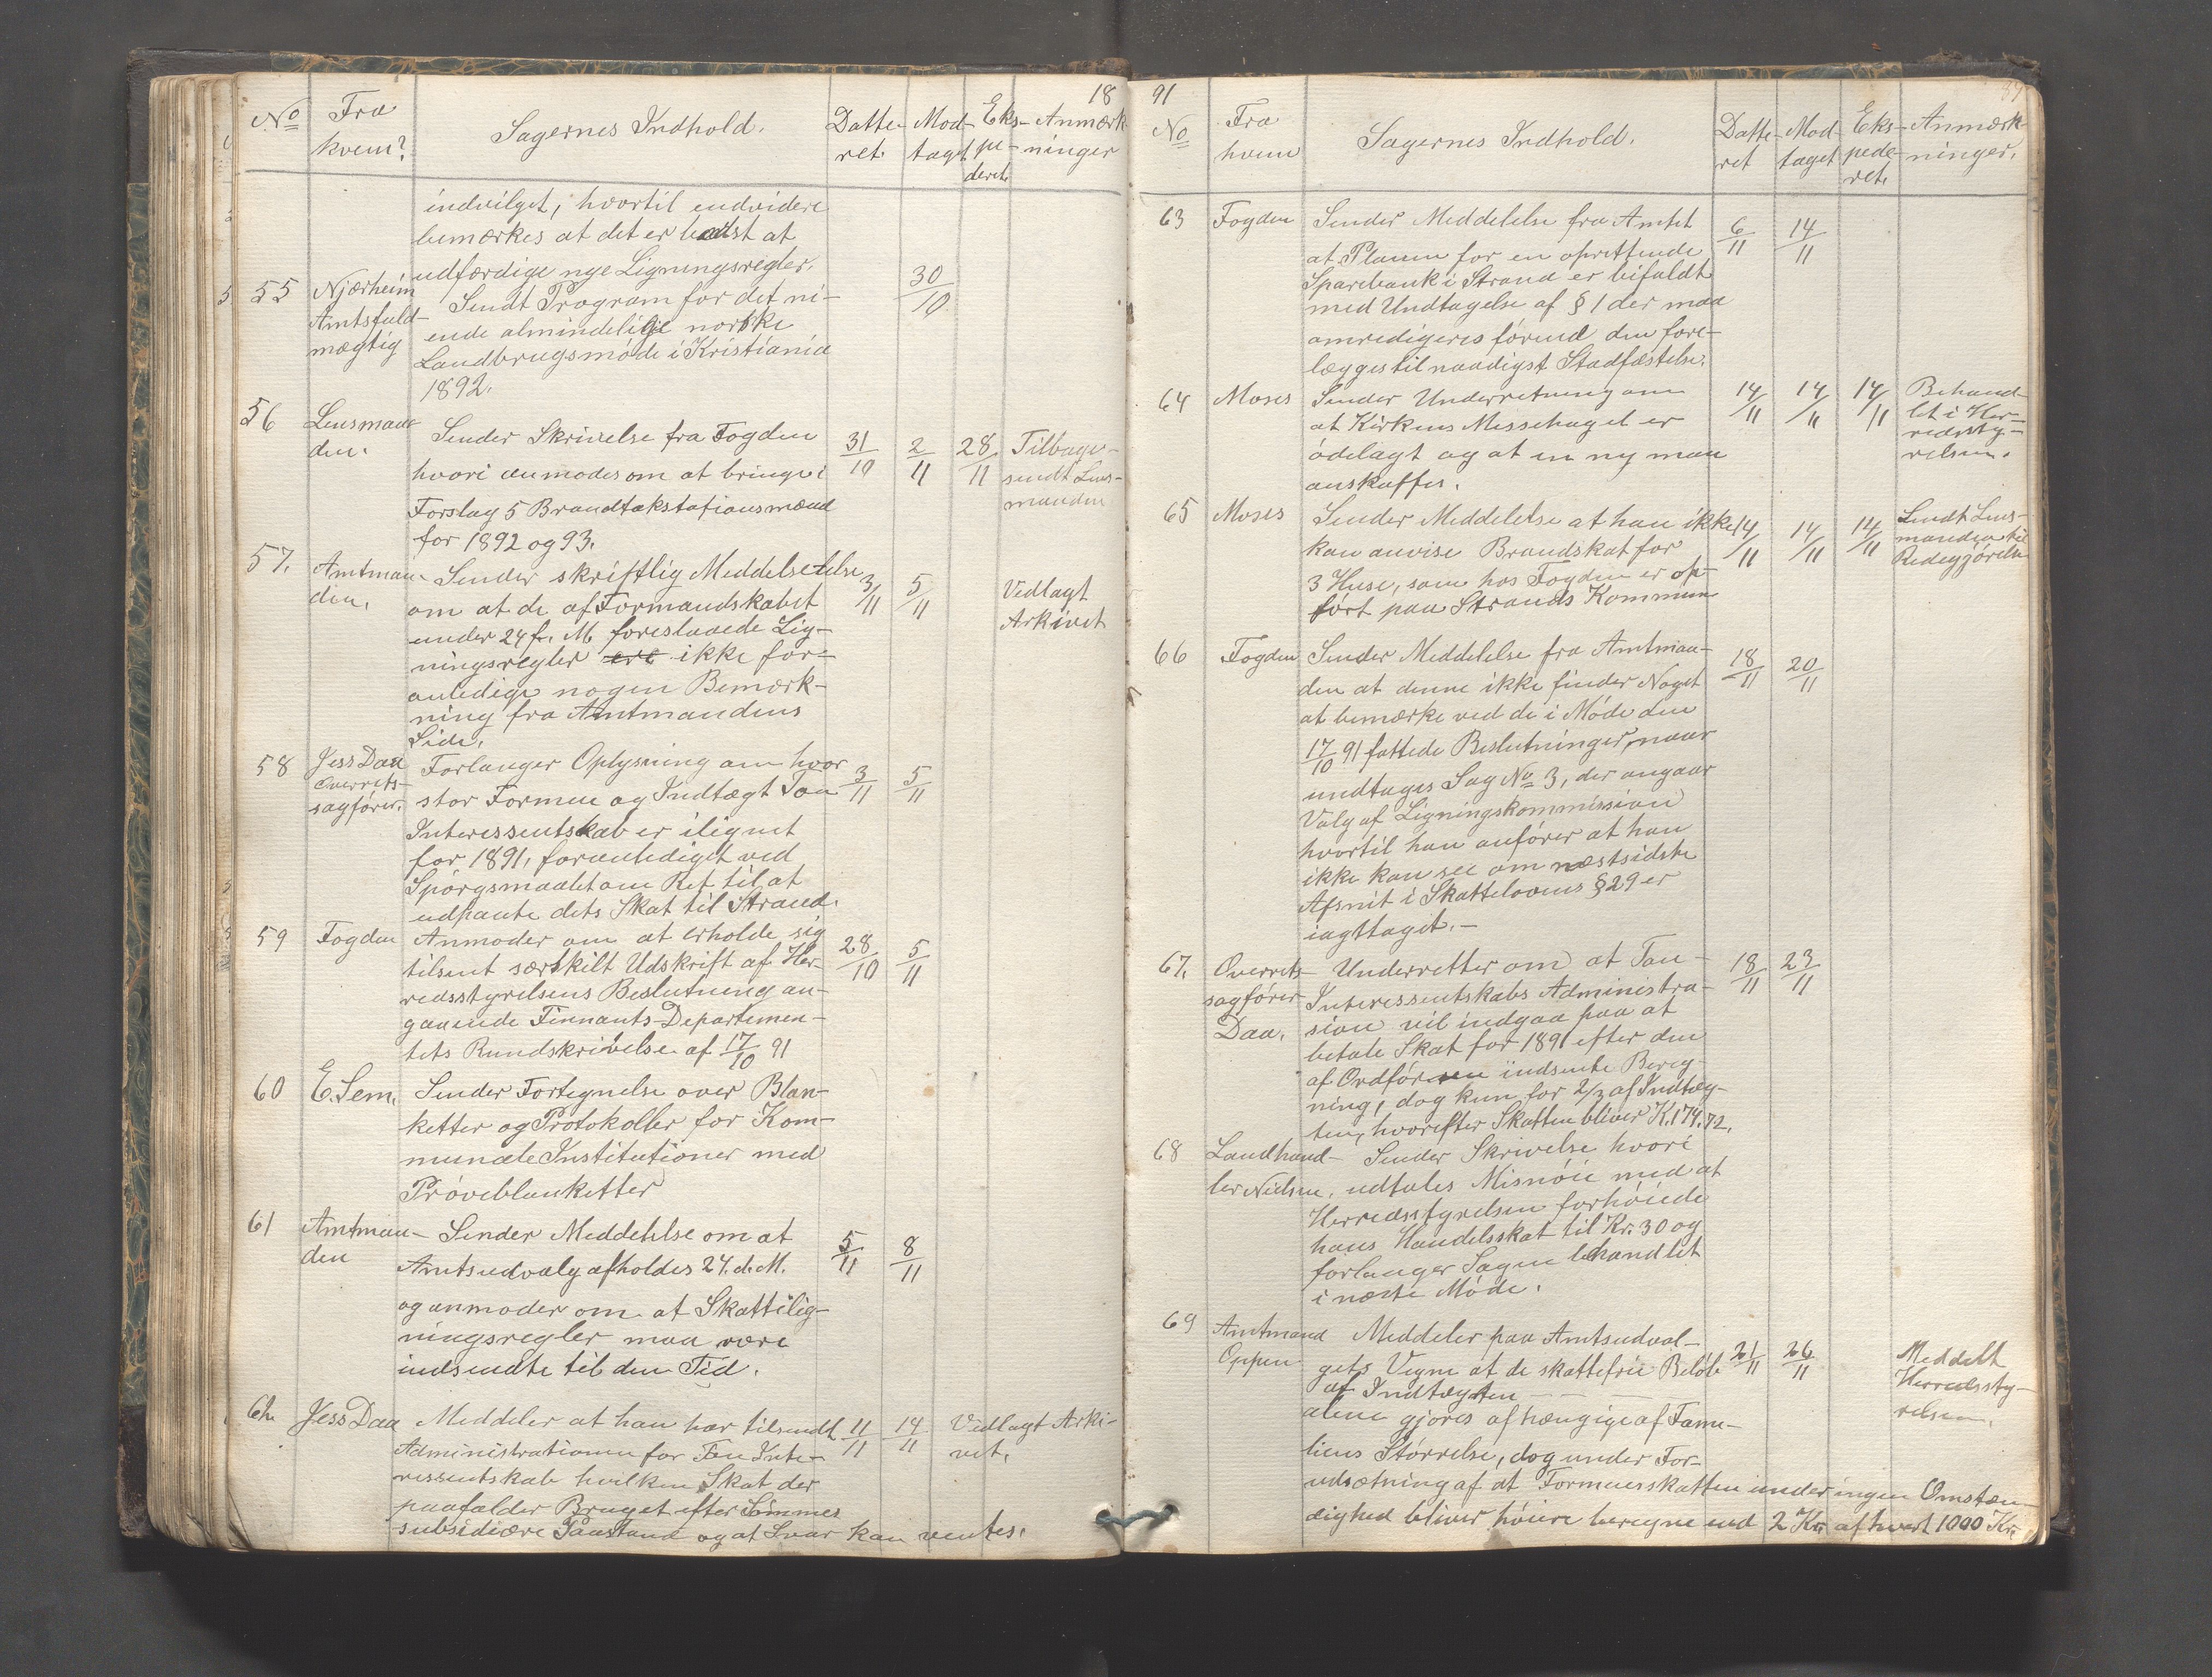 18
No Fra hvem? Sagernes Indhold. Datte- ret Mod- taget Eks- pe- deret. Anmærk- ninger
indvilget, hvortil endvidere
bemærkes at det er bedst at
udfærdige nye Ligningsregler.
55 Njærheim Amtsfuld- mægtig
Sendt Program for det ni- 30/10
ende almindelige norske
Landbrugsmöde i Kristiania
1892.
56 Lensman- den.
Sender Skrivelse fra Fogden 31/10 2/11 28/11 Tilbage-
hvori anmodes om at bringe i sendt Lens-
Forslag 5 Brandtakstationsmænd manden
for 1892 og 93.
57. Amtman- den.
Sender skriftlig Meddelse-telse 3/11 5/11 Vedlagt
om at de af Formandskabet Arkivet
under 24 f. M. foreslaaede Lig-
ningsregler ere ikke for-
anledige nogen Bemærk-
ning fra Amtmandens
Side.
58 Jess Daa Overrets- sagförer.
Forlanger Oplysning om hvor 3/11 5/11
stor Formue og Indtægt Tou
Interessentskab er ilignet
for 1891, foranlediget ved
Spörgsmaalet om Ret til at
udpante dets Skat til Strand.
59 Fogden Anmoder om at erholde sig 28/10 5/11
tilsent særskilt Udskrift af Her-
redsstyrelsens Beslutning an-
gaaende Finnants-Departemen-
tets Rundskrivelse af 17/10 91
60 E. Sem. Sender Fortegnelse over Blan-
ketter og Protokoller for Kom-
munale Institutioner med
Pröveblanketter
61 Amtman- den
Sender Meddelelse om at 5/11 8/11
Amtsudvalg afholdes 24. d. M.
og anmoder om at Skattelig-
ningsregler maa være
indsendte til den Tid.
62. Jess Daa Meddeler at han har tilsendt 11/11 14/11 Vedlagt Arki-
Administrationen for Tou Inte- vet.
ressentskab hvilken Skat der
paafalder Bruget efter Sömmes
subsidiære Paastand og at Svar kan ventes.
91
No Fra hvem Sagernes Indhold. Datte- ret Mod- taget Eks- pede- ret. Anmærk- ninger.
63 Fogden Sender Meddelelse fra Amtet 6/11 14/11
at Planen for en oprettende
Sparebank i Strand er bifaldt
med Undtagelse af § 1 der maa
omredigeres förend den fore-
lægges til naadigst Stadfæstelse.
64 Moses Sender Underretning om 14/11 14/11 14/11 Behand-
at Kirkens Messehagel er let i Her-
ödelagt og at en ny maa redssty-
anskaffes. relsen.
65 Moses Sender Meddelelse at han ikke 14/11 14/11 14/11 Sendt Lens-
kan anvise Brandskat for manden til
3 Huse, som hos Fogden er op- Redegjörelse
fört paa Strands Kommune
66 Fogden Sender Meddelelse fra Amtman- 18/11 20/11
den at denne ikke finder Noget
at bemærke ved de i Möde den
17/10 91 fattede Beslutninger, naar
undtages Sag No 3, der angaar
Valg af Ligningskommission
hvortil han anförer at han
ikke kan see om næstsidste
Afsnit i Skattelovens § 29 er
iagttaget. -
67. Overrets- sagförer Daa.
Underretter om at Tou- 18/11 23/11
Interessentskabs Administra-
sion vil indgaa paa at
betale Skat for 1891 efter den
af Ordföreren indsente Bereg-
ning, dog kun for 2/3 af Indtæg-
ten, hvorefter Skatten bliver K. 174.72.
68 Landhand- ler Nielsen.
Sender Skrivelse hvori
udtales Misnöie med at
Herredsstyrelsen forhöiede
hans Handelsskat til Kr. 30 og
forlanger Sagen behandlet
i næste Möde.
69 Amtmand Oppen
Meddeler paa Amtsudval- 21/11 26/11 Meddelt
gets Vegne at de skattefrie Belöb Herredssty-
af Indtægten - - - relsen.
alene gjöres afhængige af Fami-
liens Störrelse, dog under For-
udsætning af at Formuesskatten under ingen Omstæn-
dighed bliver höiere beregne end 2 Kr. af hvert 1000 Kr.